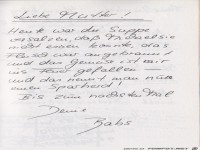 Liebe Mutter!
Heute war die Suppe
versalzen, daß man sie
nicht essen konnte, das
Fleisch war angebrannt
und das Gemüse ist mir
ins Tal gefallen
und das nennt man nun
einen Sparherd!
Bis zum nächsten Mal
Deine
Babs